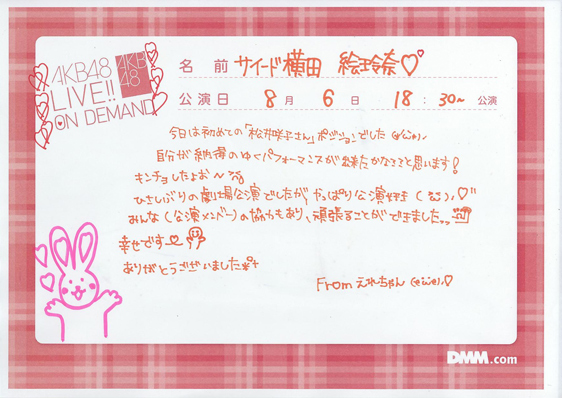 AKB48
LIVE!!
ON DEMAND
AKB
48
名 前 サイード横田 絵玲奈♡
公演日 8月 6日 18:30~ 公演
今日は初めての「松井咲子さん」ポジションでした(e'ω'e)ノ
自分が納得のゆくパフォーマンスが出来たかなぁ〜と思います!
キンチョしたよお〜
ひさしぶりの劇場公演でしたが、やっぱり公演好き
みんな(公演メンバー)の協力もあり、頑張ることができました
幸せです
ありがとうございました
From えれちゃん (e'ω'e)ノ♡
DMM.com